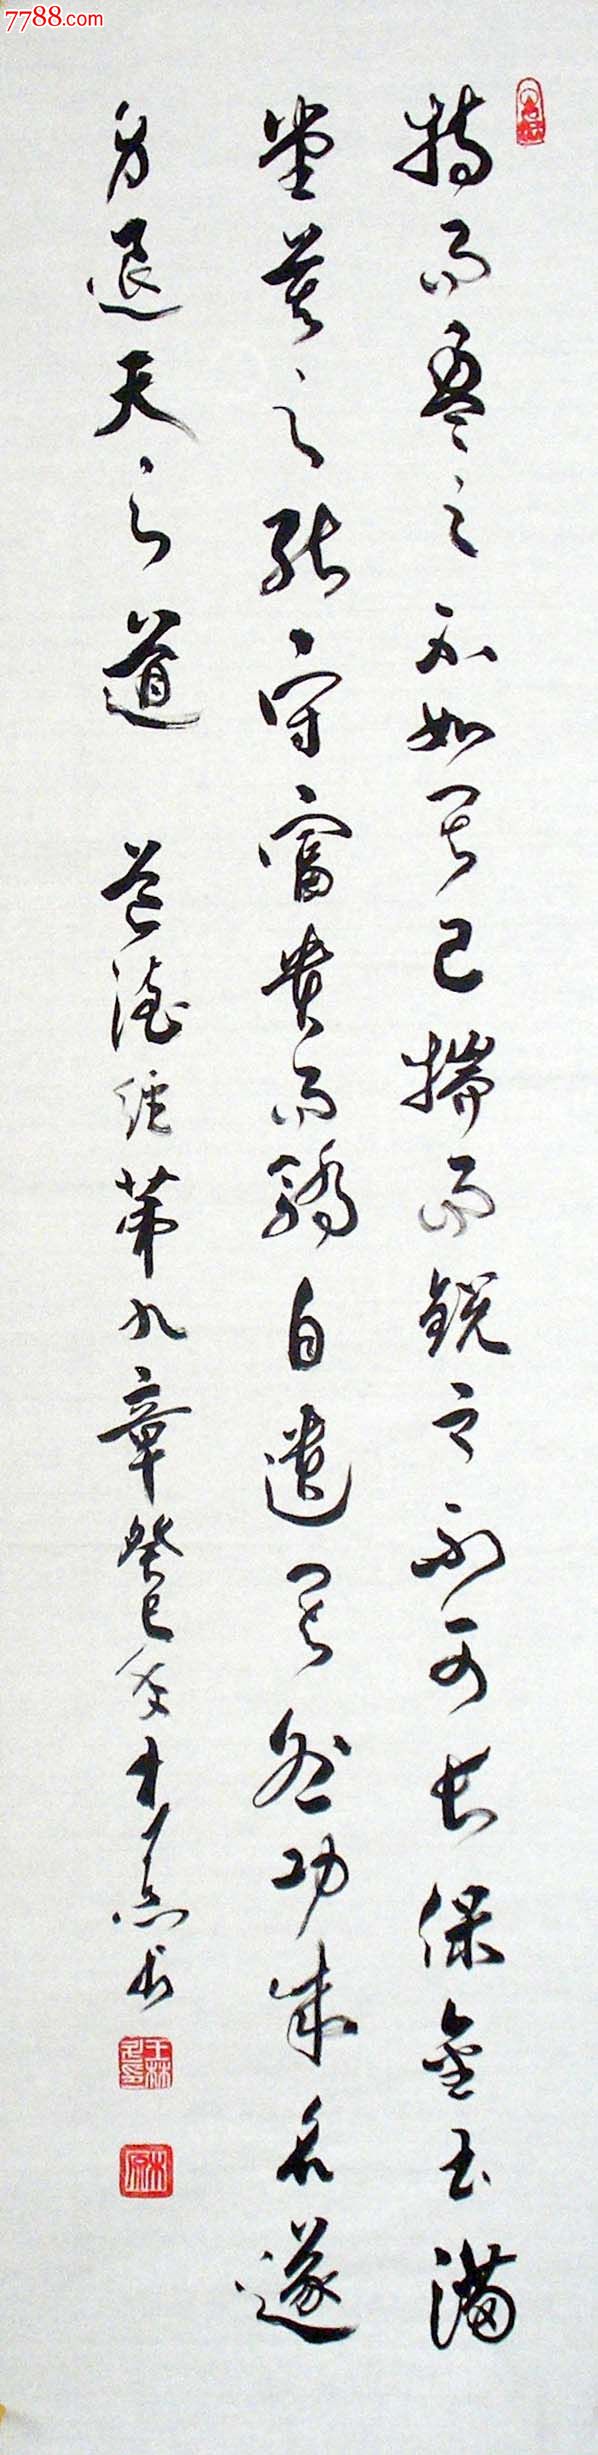 7788.com
持而盈之不如其已揣而锐之不可长保金玉满
堂莫之能守富贵而骄自遗其咎功成名遂
身退天之道 道德经第九章癸巳年